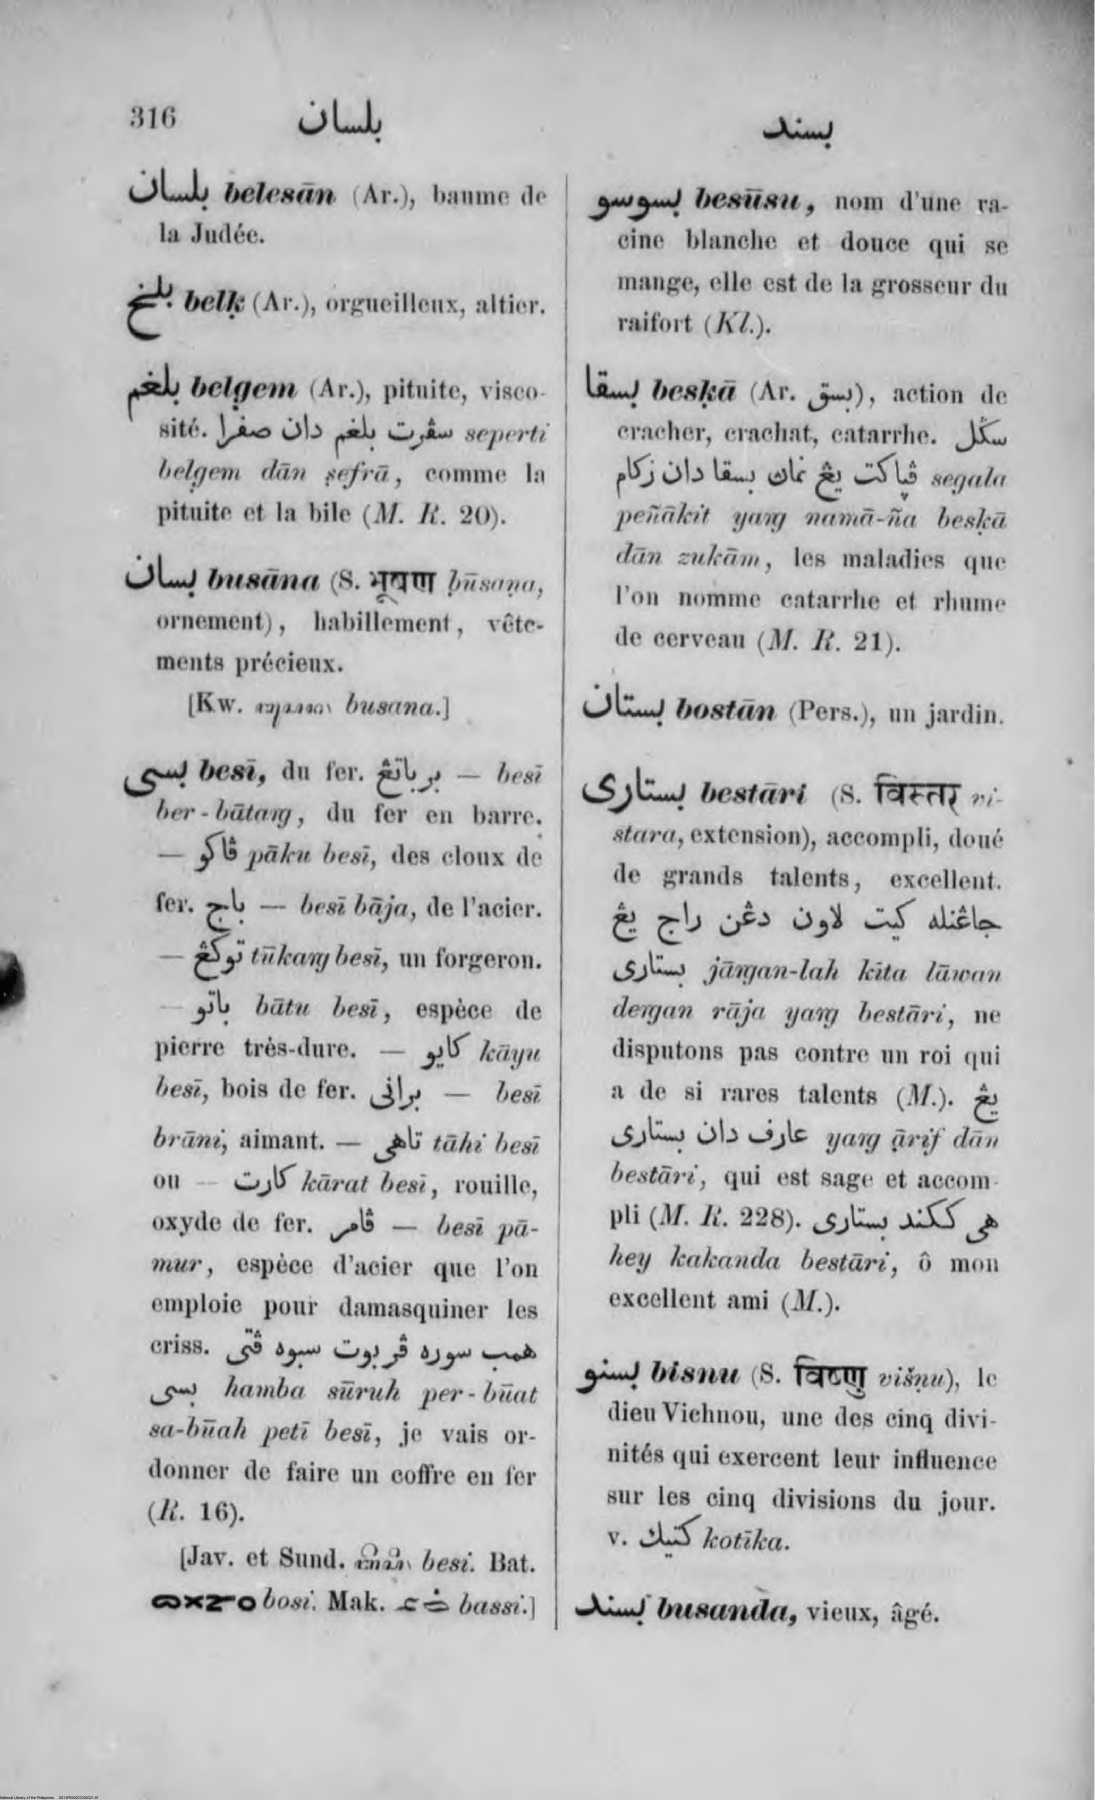 316 بلسان بسند
بلسان belesān (Ar.), baume de
la Judée.
بلخ belḳ (Ar.), orgueilleux, altier.
بلغم belg̣em (Ar.), pituite, visco-
sité. سڤرت بلغم دان صفرا seperti
belg̣em dān ṣefrā, comme la
pituite et la bile (M. R. 20).
بسان busāna (S. भूषण ḅūsaṇa,
ornement), habillement, vête-
ments précieux.
[Kw. busana.]
بسى besī, du fer. برباتڠ — besī
ber-bātaŋg, du fer en barre.
— ڤاكو pāku besī, des cloux de
fer. باج — besī bāja, de l'acier.
— توكڠ tūkaŋg besī, un forgeron.
— باتو bātu besī, espèce de
pierre très-dure. — كايو kāyu
besī, bois de fer. برانى — besī
brāni, aimant. — تاهى tāhi besī
ou — كارت kārat besī, rouille,
oxyde de fer. ڤامر — besī pā-
mur, espèce d'acier que l'on
emploie pour damasquiner les
criss. همب سوره ڤربوت سبوه ڤتى
بسى hamba sūruh per-būat
sa-būah petī besī, je vais or-
donner de faire un coffre en fer
(R. 16).
[Jav. et Sund. besi. Bat.
bosi. Mak. bassi.]
بسوسو besūsu, nom d'une ra-
cine blanche et douce qui se
mange, elle est de la grosseur du
raifort (Kl.).
بسقا besḳā (Ar. بسق), action de
cracher, crachat, catarrhe. سڬل
ڤپاكت يڠ نماڽ بسقا دان زكام segala
peñākit yaŋg namā-ña besḳā
dān zukām, les maladies que
l'on nomme catarrhe et rhume
de cerveau (M. R. 21).
بستان bostān (Pers.), un jardin.
بستارى bestāri (S. विस्तर vi-
stara, extension), accompli, doué
de grands talents, excellent.
جاڠنله كيت لاون دڠن راج يڠ
بستارى jāŋgan-lah kita lāwan
deŋgan rāja yaŋg bestāri, ne
disputons pas contre un roi qui
a de si rares talents (M.). يڠ
عارف دان بستارى yaŋg ạ̄rif dān
bestāri, qui est sage et accom-
pli (M. R. 228). هى ككند بستارى
hey kakanda bestāri, ô mon
excellent ami (M.).
بسنو bisnu (S. विष्णु višṇu), le
dieu Vichnou, une des cinq divi-
nités qui exercent leur influence
sur les cinq divisions du jour.
v. كتيك kotīka.
بسند busanda, vieux, âgé.